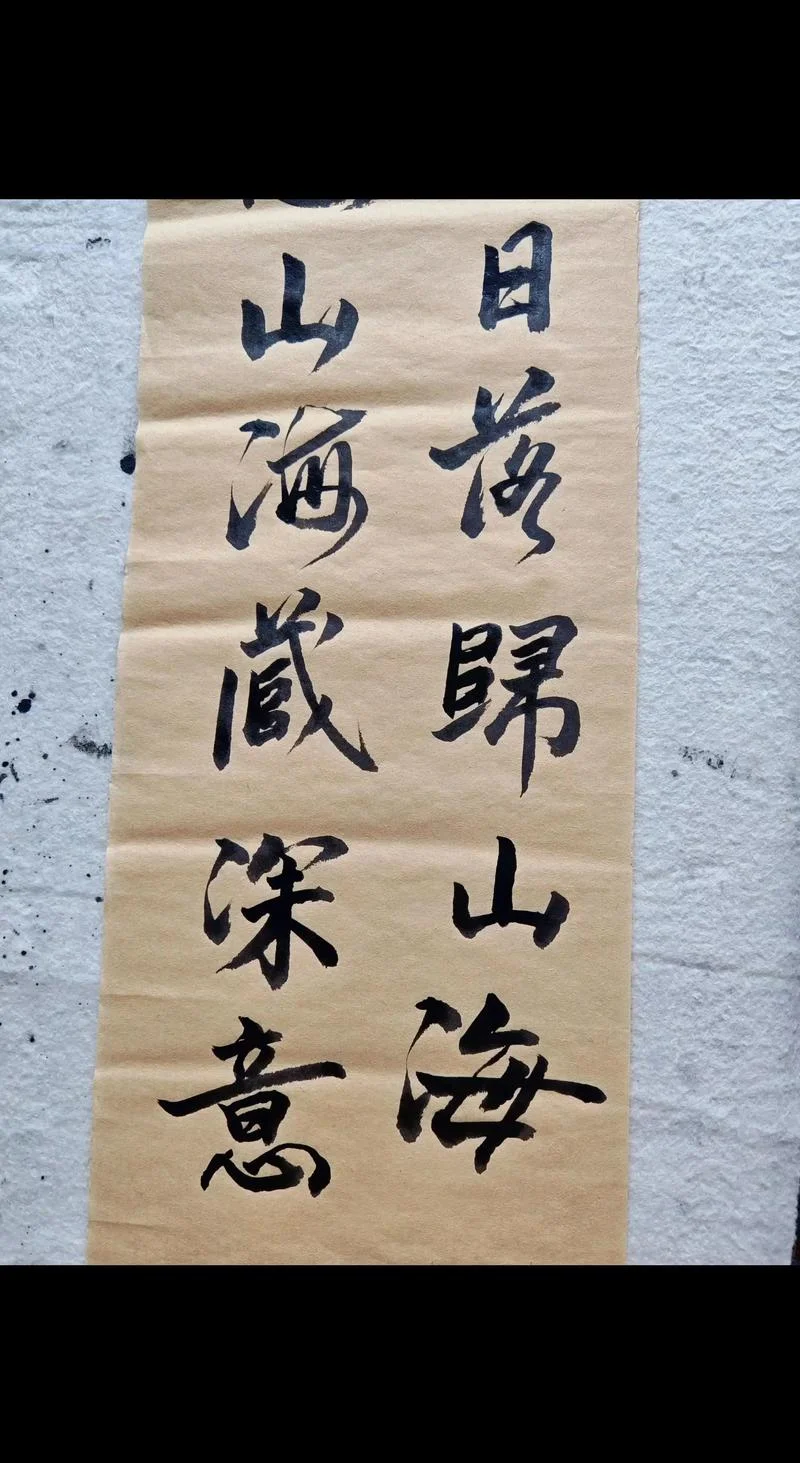 日落歸山海
山海藏深意